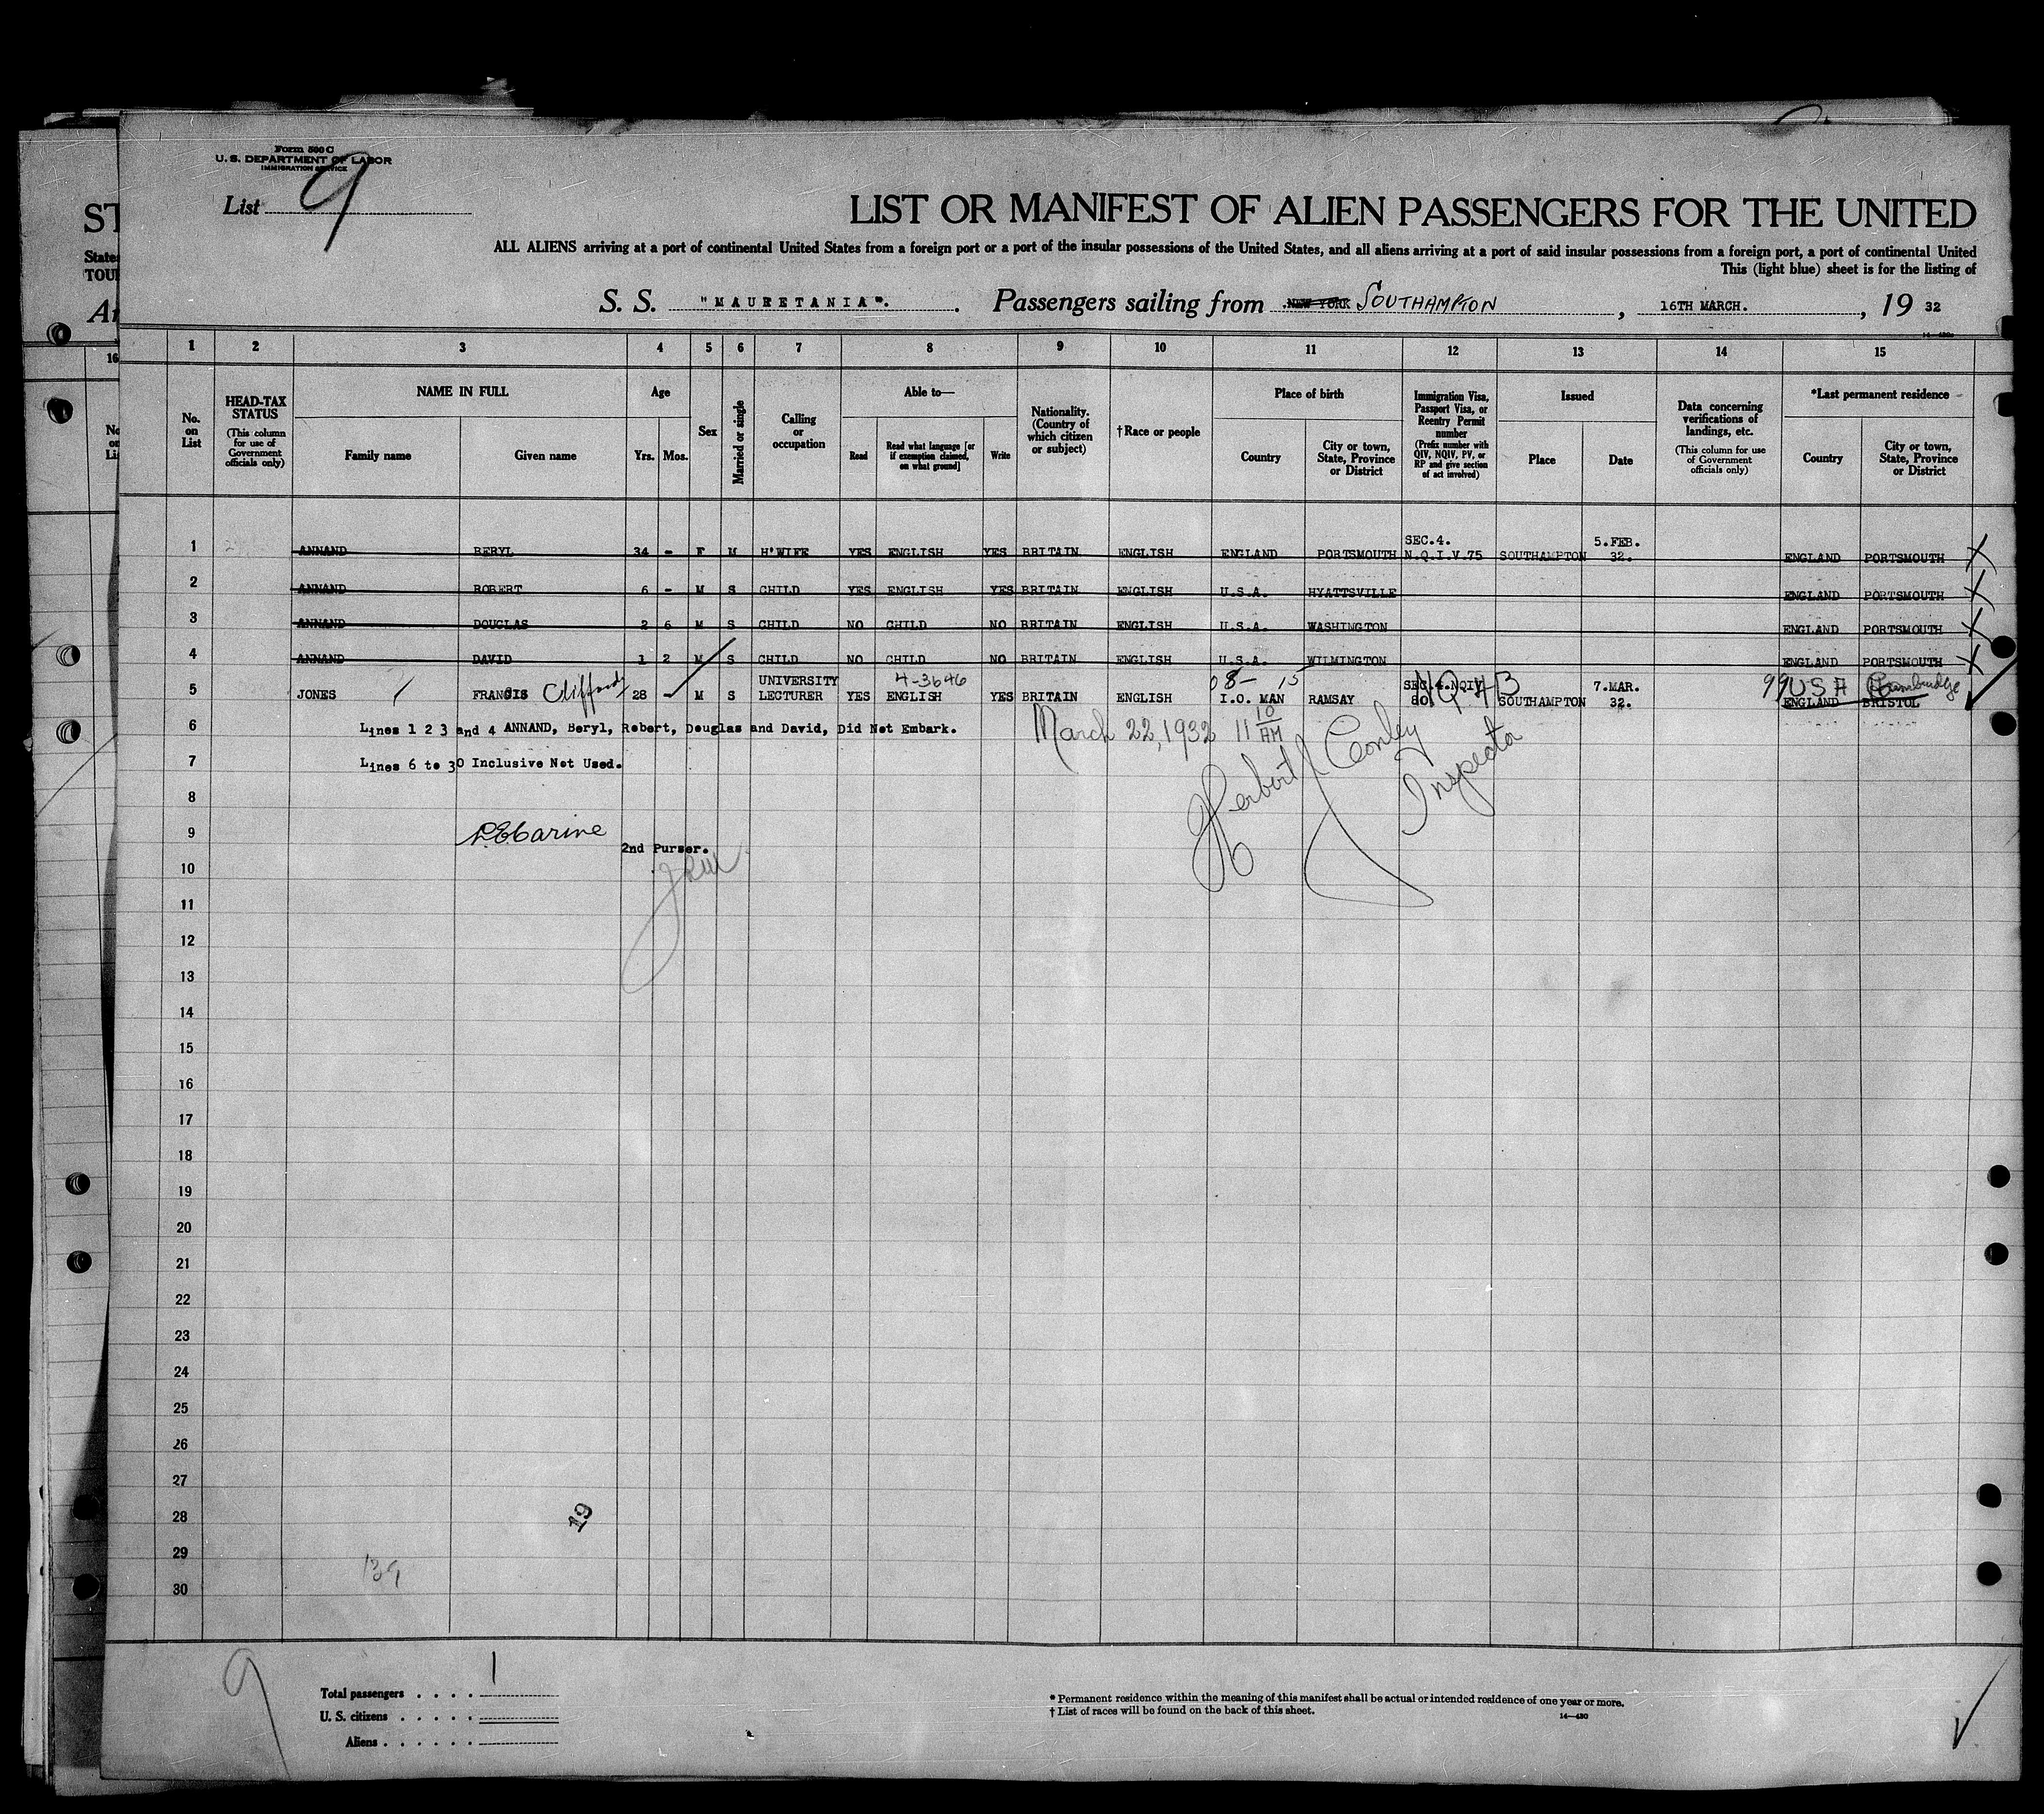 Form 500 C
U. S. DEPARTMENT OF LABOR
IMMIGRATION SERVICE
List 9
LIST OR MANIFEST OF ALIEN PASSENGERS FOR THE UNITED
ALL ALIENS arriving at a port of continental United States from a foreign port or a port of the insular possessions of the United States, and all aliens arriving at a port of said insular possessions from a foreign port, a port of continental United
This (light blue) sheet is for the listing of
S. S. "MAURETANIA". Passengers sailing from NEW YORK SOUTHAMPTON, 16TH MARCH., 19 32
1 2 3 4 5 6 7 8 9 10 11 12 13 14 15
No. on List
HEAD-TAX STATUS (This column for use of Government officials only)
NAME IN FULL
Family name Given name
Age
Yrs. Mos.
Sex
Married or single
Calling or occupation
Able to—
Read
Read what language [or if exemption claimed, on what ground]
Write
Nationality. (Country of which citizen or subject)
†Race or people
Place of birth
Country
City or town, State, Province or District
Immigration Visa, Passport Visa, or Reentry Permit number (Prefix number with QIV, NQIV, PV, or RP and give section of act involved)
Issued
Place Date
Data concerning verifications of landings, etc. (This column for use of Government officials only)
*Last permanent residence
Country
City or town, State, Province or District
1 ANNAND BERYL 34 - F M H'WIFE YES ENGLISH YES BRITAIN ENGLISH ENGLAND PORTSMOUTH SEC.4. N.Q.I.V.75 SOUTHAMPTON 5.FEB. 32. ENGLAND PORTSMOUTH X
2 ANNAND ROBERT 6 - M S CHILD YES ENGLISH YES BRITAIN ENGLISH U.S.A. HYATTSVILLE ENGLAND PORTSMOUTH X
3 ANNAND DOUGLAS 2 6 M S CHILD NO CHILD NO BRITAIN ENGLISH U.S.A. WASHINGTON ENGLAND PORTSMOUTH X
4 ANNAND DAVID 1 2 M S CHILD NO CHILD NO BRITAIN ENGLISH U.S.A. WILMINGTON ENGLAND PORTSMOUTH X
4-3646
5 JONES FRANCIS Clifford 28 - M S UNIVERSITY LECTURER YES ENGLISH YES BRITAIN ENGLISH I.O. MAN RAMSAY SEC.4.NQIV 80 SOUTHAMPTON 7.MAR. 32. 99 USA Cambridge ENGLAND BRISTOL
6 Lines 1 2 3 and 4 ANNAND, Beryl, Robert, Douglas and David, Did Not Embark.
March 22, 1932 11 10 AM
7 Lines 6 to 30 Inclusive Not Used.
Herbert J Conley
Inspector
8
9
2nd Purser.
10
11
12
13
14
15
16
17
18
19
20
21
22
23
24
25
26
27
28 19
29 139
30
9
Total passengers . . . . 1
U. S. citizens . . . . .
Aliens . . . . . .
* Permanent residence within the meaning of this manifest shall be actual or intended residence of one year or more.
† List of races will be found on the back of this sheet.
14—430